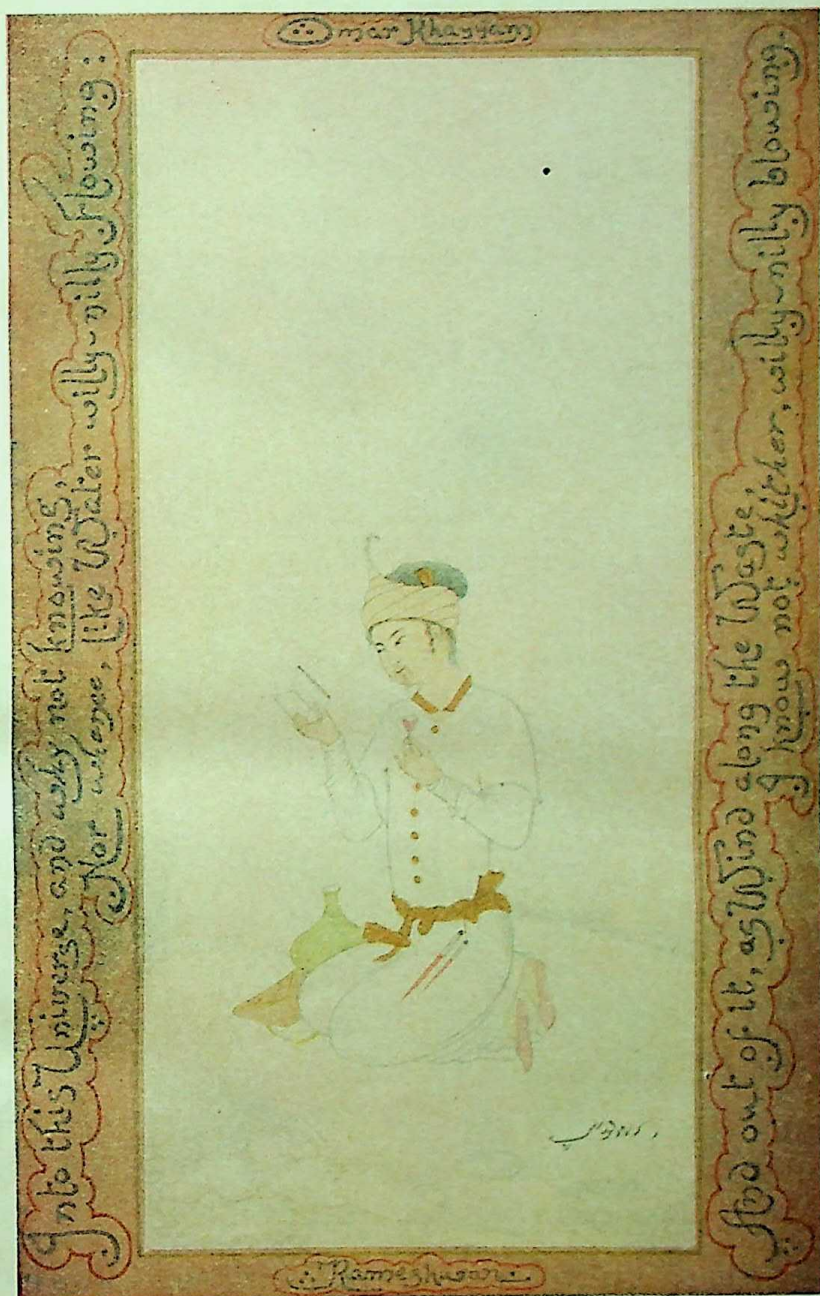 Omar Khayyam
Into this Universe, and why not knowing,
Nor whence, like Water willy-nilly flowing:
And out of it, as Wind along the Waste,
I know not whither, willy-nilly blowing.
Rameshwar